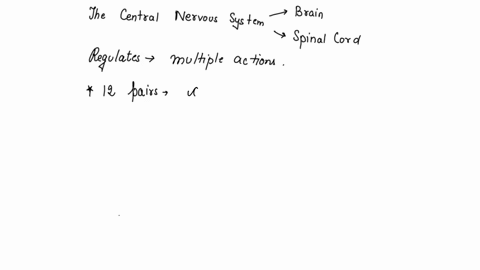 The Central Nervous System → Brain
→ Spinal Cord
Regulates → multiple actions.
* 12 pairs →